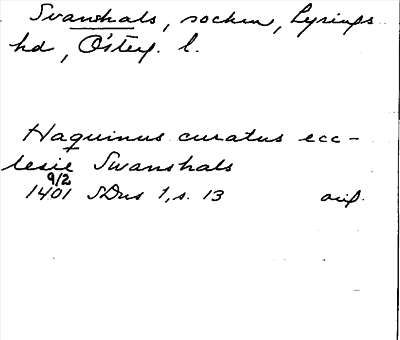 Svanshals, socken, Lysings
hd, Österg. l.
Haquinus curatus ecc-
lesie Swanshals
9/2
1401 SDns 1, s. 13 orig.